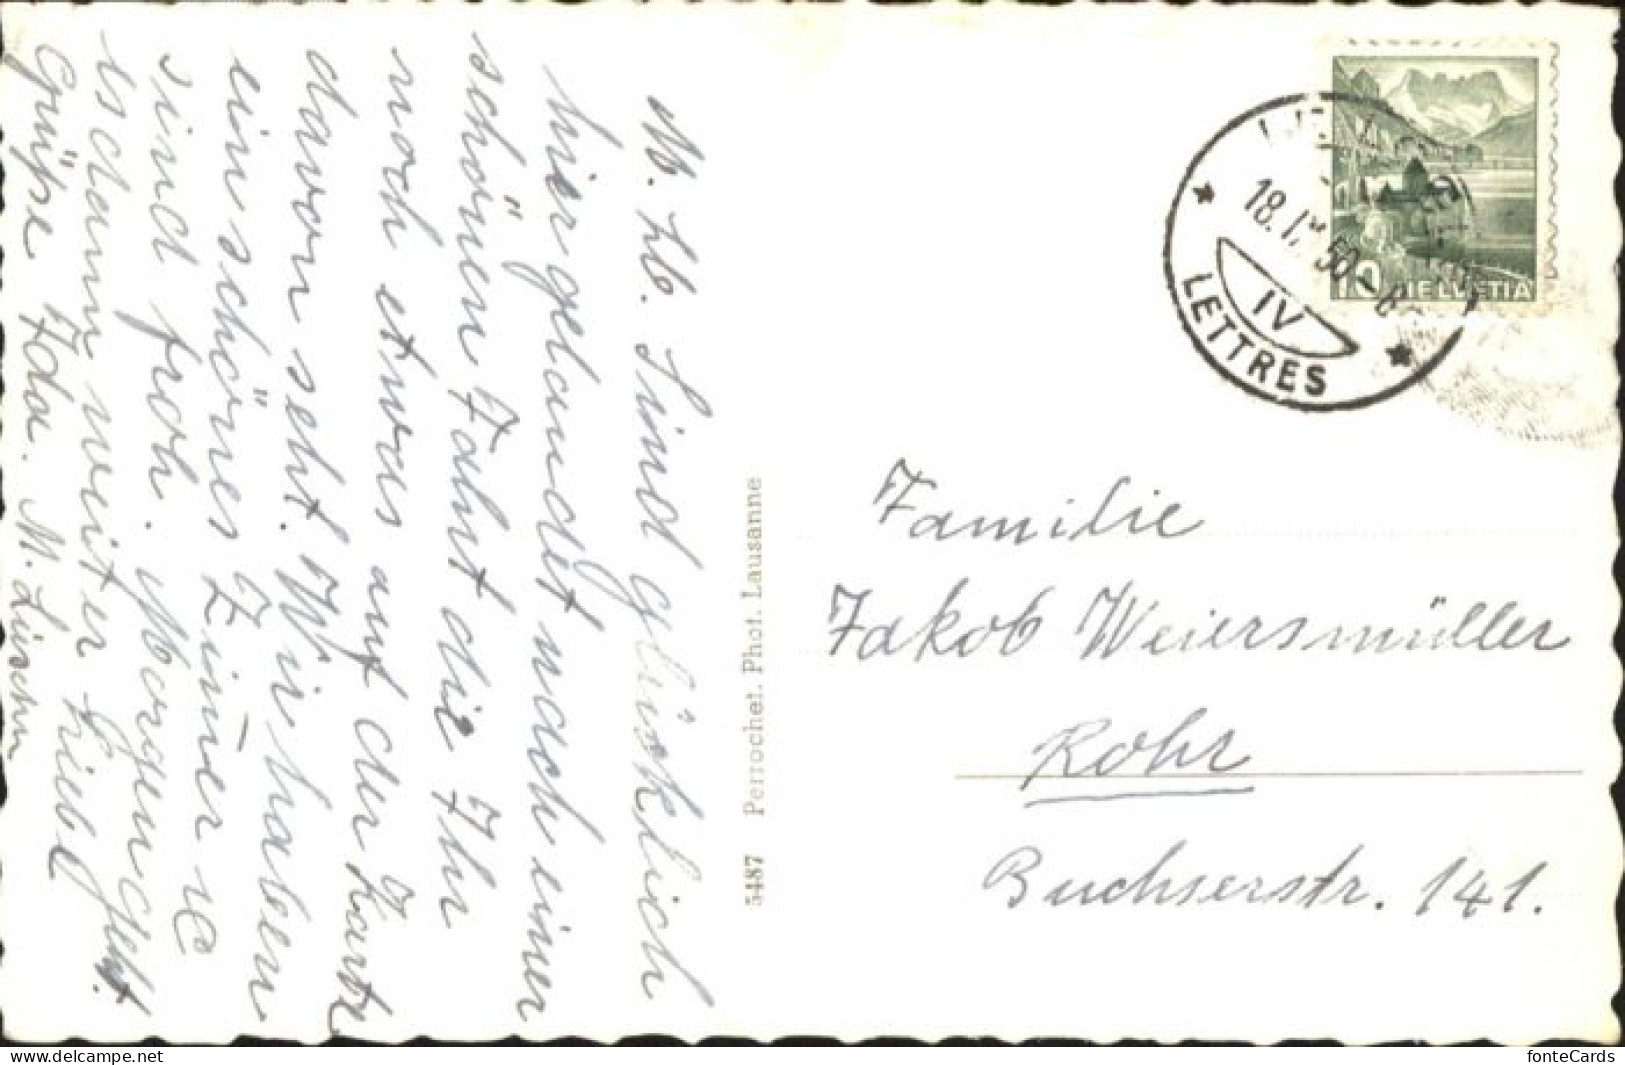 M. Lb. Sind glücklich
hier gelandet nach einer
schönen Fahrt die Ihr
noch etwas auf der Karte
davon seht. Wir haben
ein schönes Zimer u
sind froh. Morgen geht
es dann weiter
Grüsse Ida. M. Lüscher
5487 Perrochet. Phot. Lausanne
18. 50
IV
LETTRES
10 HELVETIA
Familie
Jakob Weiersmüller
Rohr
Buchserstr. 141.
www.delcampe.net
fonteCards